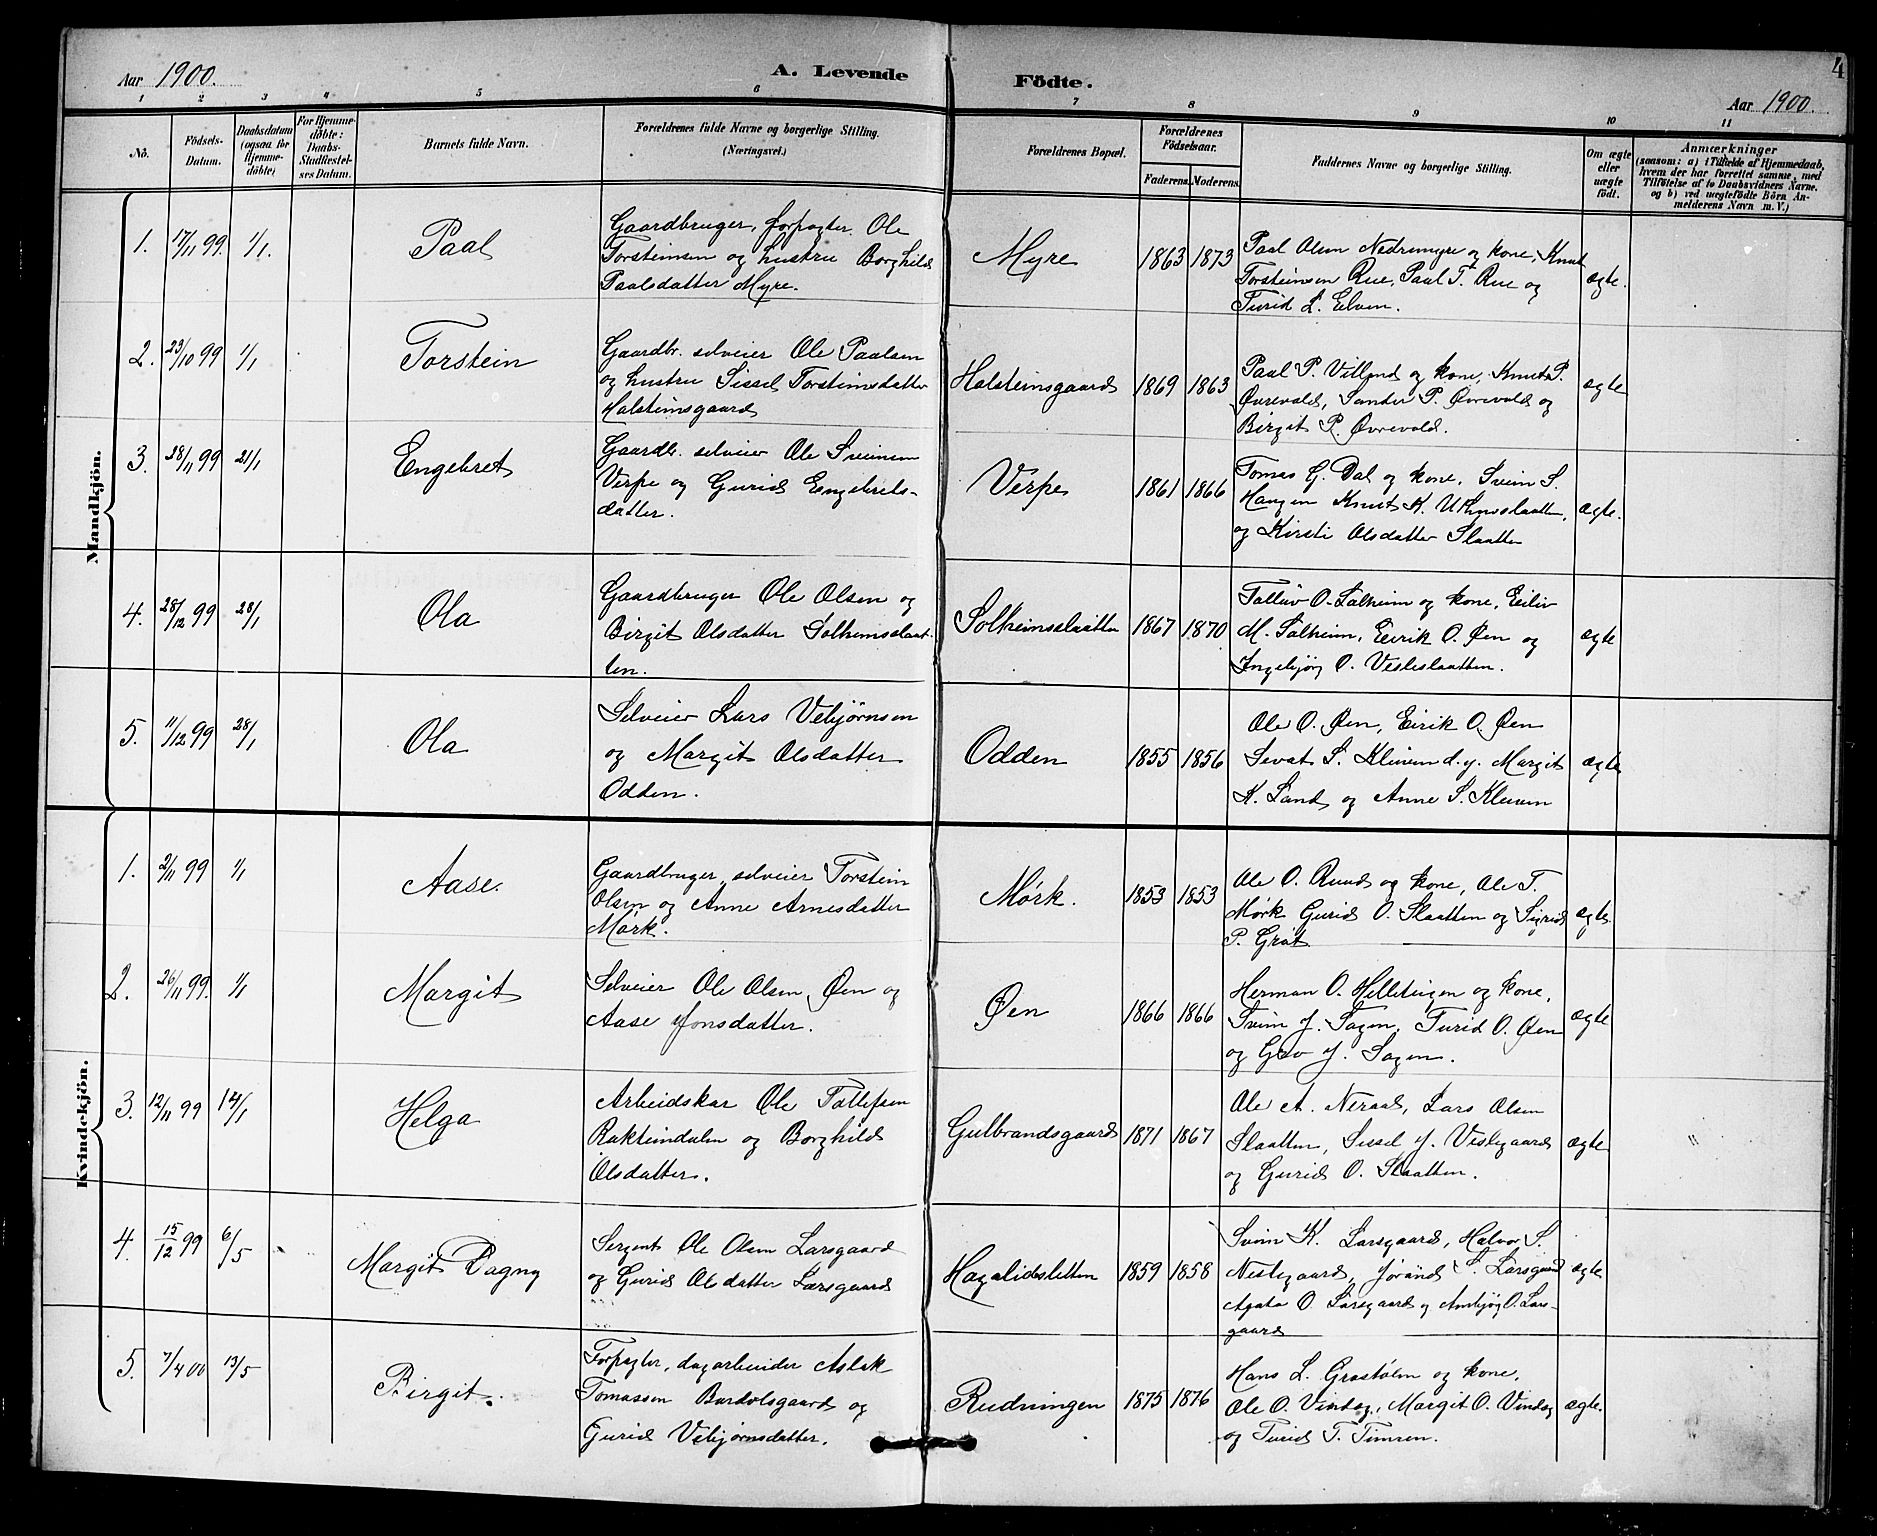 4
Aar 1900.
A. Levende
Födte.
Aar 1900.
1 2 3 4 5 6 7 8 9 10 11
No.
Födsels-
Datum.
Daabsdatum
(ogsaa for
Hjemme-
döbte)
For Hjemme-
döbte:
Daabs-
Stadfæstel-
ses Datum.
Barnets fulde Navn.
Forældrenes fulde Navne og borgerlige Stilling.
(Næringsvei.)
Forældrenes Bopæl.
Forældrenes
Födselsaar.
Faderens. Moderens.
Faddernes Navne og borgerlige Stilling.
Om ægte
eller
uægte
født.
Anmærkninger
(saasom: a) i Tilfælde af Hjemmedaab,
hvem der har forrettet samme, med
Tilföielse af to Daabsvidners Navne,
og b) ved uægtefödte Börn An-
melderens Navn m. V.)
Mandkjön.
1. 17/11 99. 1/1. Paal
Gaardbruger, forpagter. Ole
Torsteinsen og hustru Borghild
Paalsdatter Myre.
Myre 1863 1873
Paal Olsen Nedremyre og kone, Knut
Torsteinsen Rue, Paal T. Rue og
Turid L. Elven.
ægte.
2. 23/10 99 1/1 Torstein
Gaardbr. selveier Ole Paalsen
og hustru Sissel Torsteinsdatter
Halsteinsgaard
Halsteinsgaard 1869 1863
Paal P. Villand og kone, Knut P.
Øvrevold, Sander P. Øvrevold og
Birgit P. Øvrevold.
ægte
3. 28/11 99 21/1 Engebret
Gaardb. selveier Ole Sveinsen
Verpe og Gurid Engebrets-
datter.
Verpe 1861 1866
Tomas G. Dal og kone, Svein S.
Haugen Knut K.
og Kirsti Olsdatter Slaatten
ægte.
4. 28/12 99 28/1 Ola
Gaardbruger Ole Olsen og
Birgit Olsdatter Solheimslaat-
ten.
Solheimslaatten 1867 1870
Tollev O. Solheim og kone, Eiliv
M. Solheim, Eirik O. Øen og
Ingebjørg O. Vesleslaatten.
ægte
5. 11/12 99 28/1 Ola
Selveier Lars Vebjørnsen
og Margit Olsdatter
Odden.
Odden 1855 1856
Ole O. Øen, Eirik O. Øen
Sevat S. Kleiven d.y. Margit
K. Sand og Anne S. Kleiven
ægte
Kvindekjön.
1. 2/11 99 1/1 Aase.
Gaardbruger, selveier Torstein
Olsen og Anne Arnesdatter
Mørk.
Mørk. 1853 1853
Ole O. Ruud og kone, Ole T.
Mørk Gurid O. Slaatten og Sigrid
P. Grøt
ægte
2. 26/11 99. 1/1 Margit
Selveier Ole Olsen Øen og
Aase Jonsdatter.
Øen 1866 1866
Herman O. Helleteigen og kone,
Svein J. Sagen, Turid O. Øen
og Gro J. Sagen.
ægte
3. 12/11 99 14/1 Helga
Arbeidskar Ole Tollefsen
Rakteindalen og Borghild
Olsdatter.
Gulbrandsgaard 1871 1867
Ole A. Neraal, Lars Olsen
Slaatten, Sissel J. Veslegaard
og Gurid O. Slaatten.
ægte
4. 15/12 99 6/5 Margit Dagny
Sergent Ole Olsen Larsgaard
og Gurid Olsdatter Larsgaard
Hagalidsletten 1859 1858
Svein K. Larsgaard, Halvor S.
Nestegaard, Jørand S. Larsgaard
Agata O. Larsgaard og Ambjøg O. Lars-
gaard
ægte
5. 7/4 00 13/5 Birgit.
Forpagter, dagarbeider Aslak
Tomassen Bardolsgaard og
Gurid Vebjørnsdatter.
Rudningen 1875 1876
Hans L. Grøstølen og kone,
Ole O. Vindeg, Margit O. Vindeg
og Turid T. Timren.
ægte.